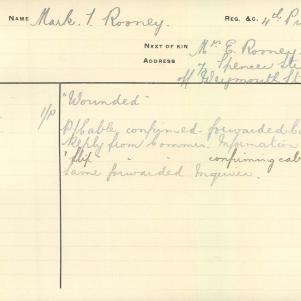 NAME Mark T. Rooney. REG. &C. 11th
NEXT OF KIN Mrs E. Rooney.
ADDRESS 7 Spencer
off Weymouth St
1/P "Wounded"
P/Cable confirmed forwarded
Reply from Commer. Information
"slip" confirming
Same forwarded Inquirer.